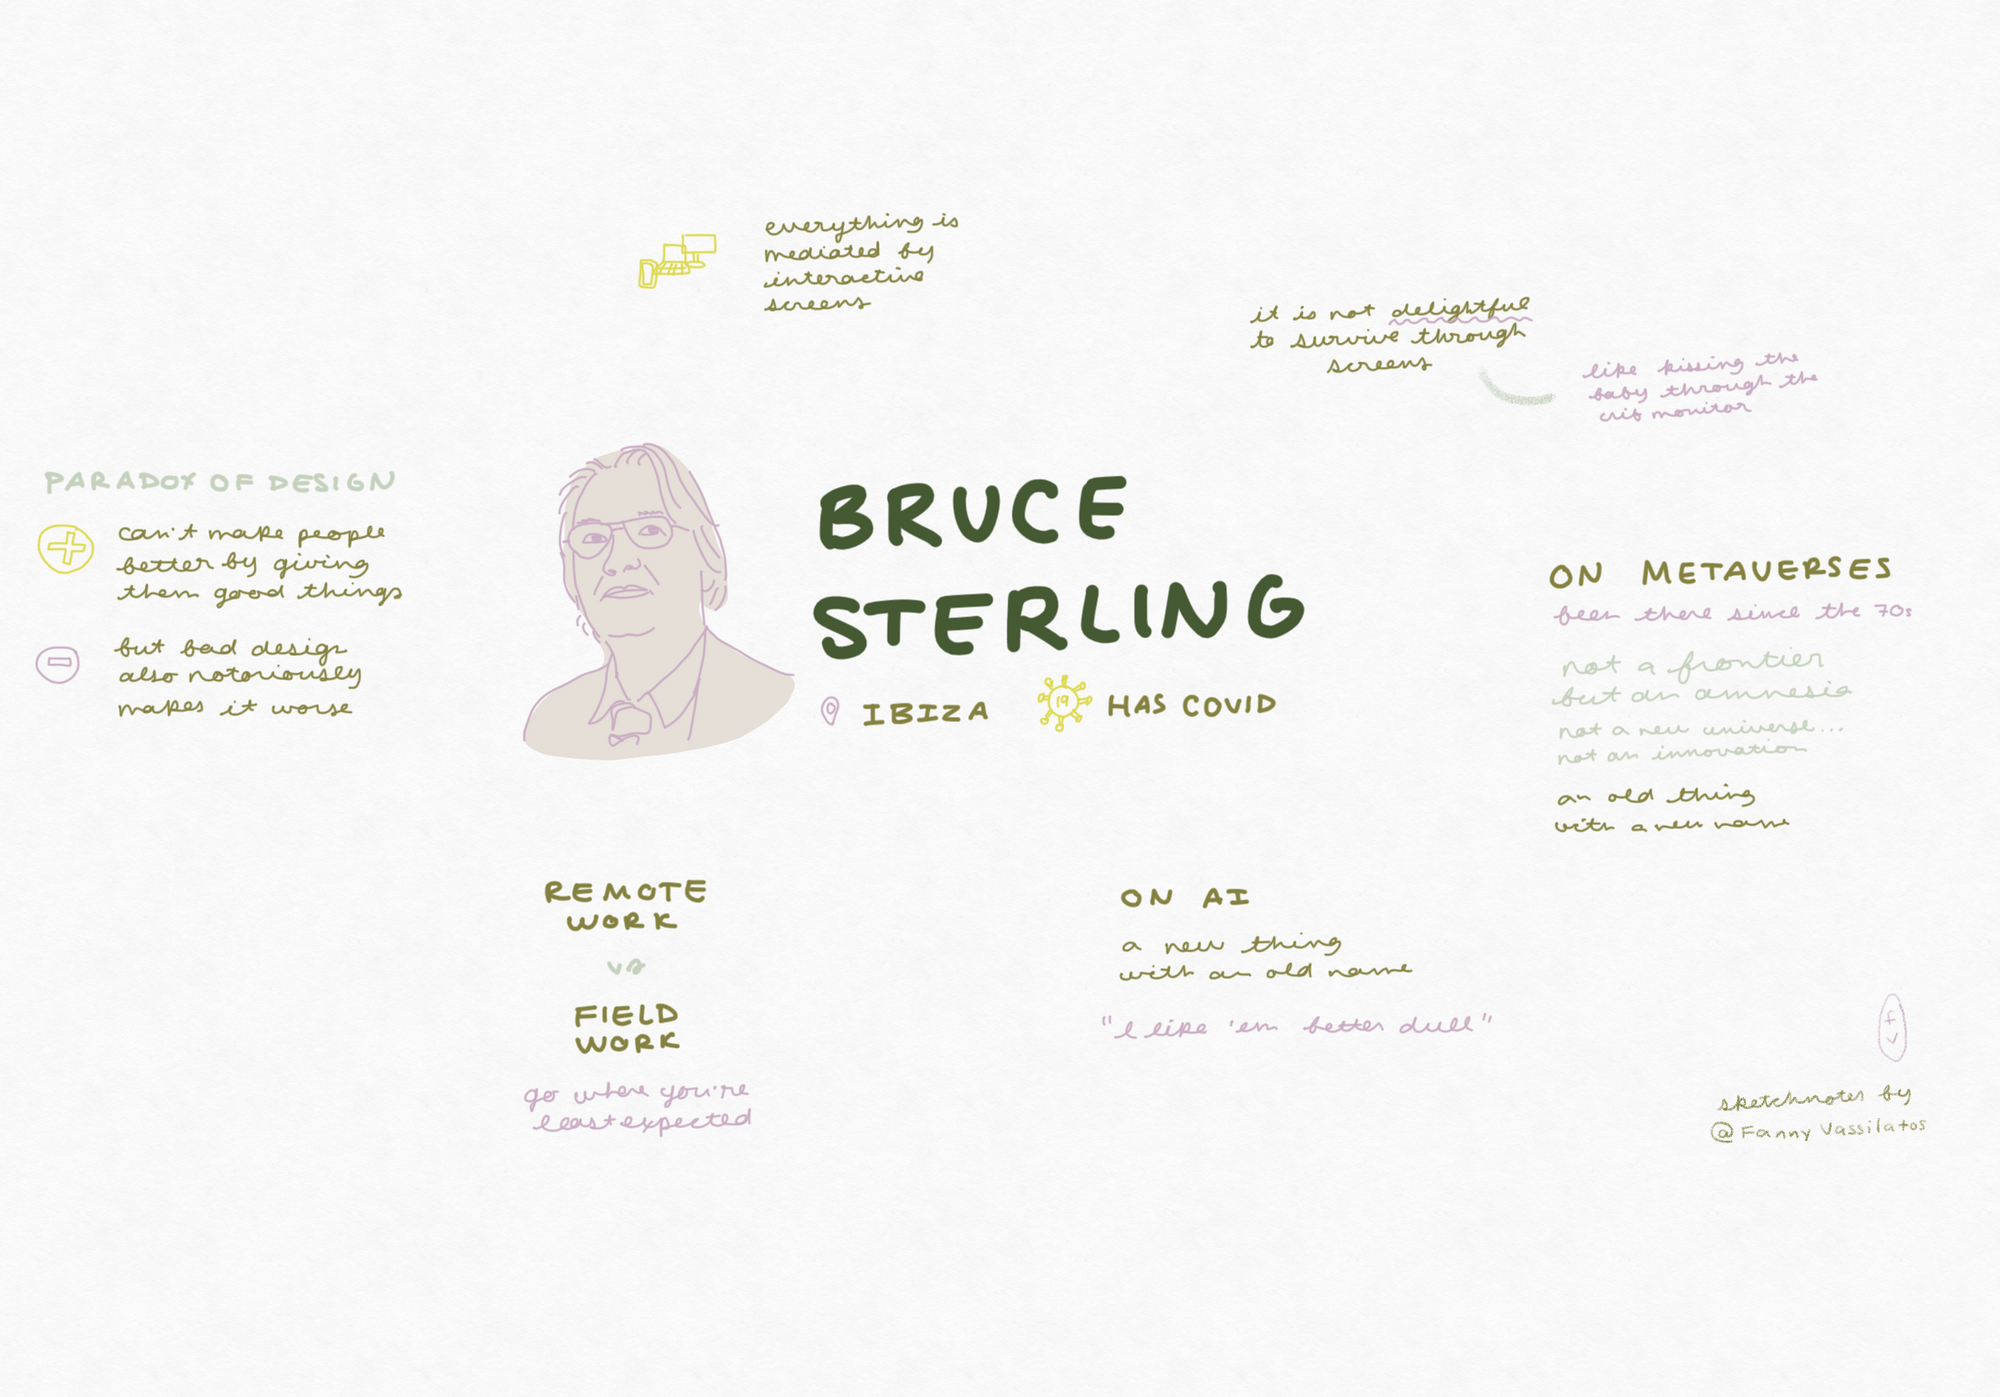 everything is
mediated by
interactive
screens
it is not delightful
to survive through
screens
like kissing the
baby through the
crib monitor
PARADOX OF DESIGN
can't make people
better by giving
them good things
but bad design
also notoriously
makes it worse
BRUCE
STERLING
IBIZA
19
HAS COVID
ON METAVERSES
been there since the 70s
not a frontier
but an amnesia
not a new universe...
not an innovation
an old thing
with a new name
REMOTE
WORK
vs
FIELD
WORK
go where you're
least expected
ON AI
a new thing
with an old name
"I like 'em better dull"
f
v
sketchnotes by
@Fanny Vassilatos